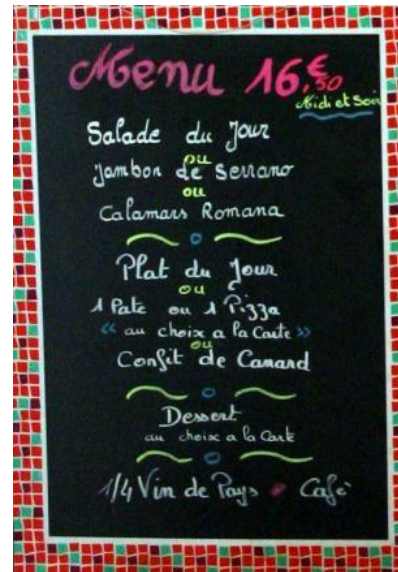 Menu 16,€50
Midi et Soir
Salade du Jour
ou
Jambon de Serrano
ou
Calamars Romana
Plat du Jour
ou
1 Pate ou 1 Pizza
« au choix a la Carte »
ou
Confit de Canard
Dessert
au choix a la Carte
1/4 Vin de Pays Café